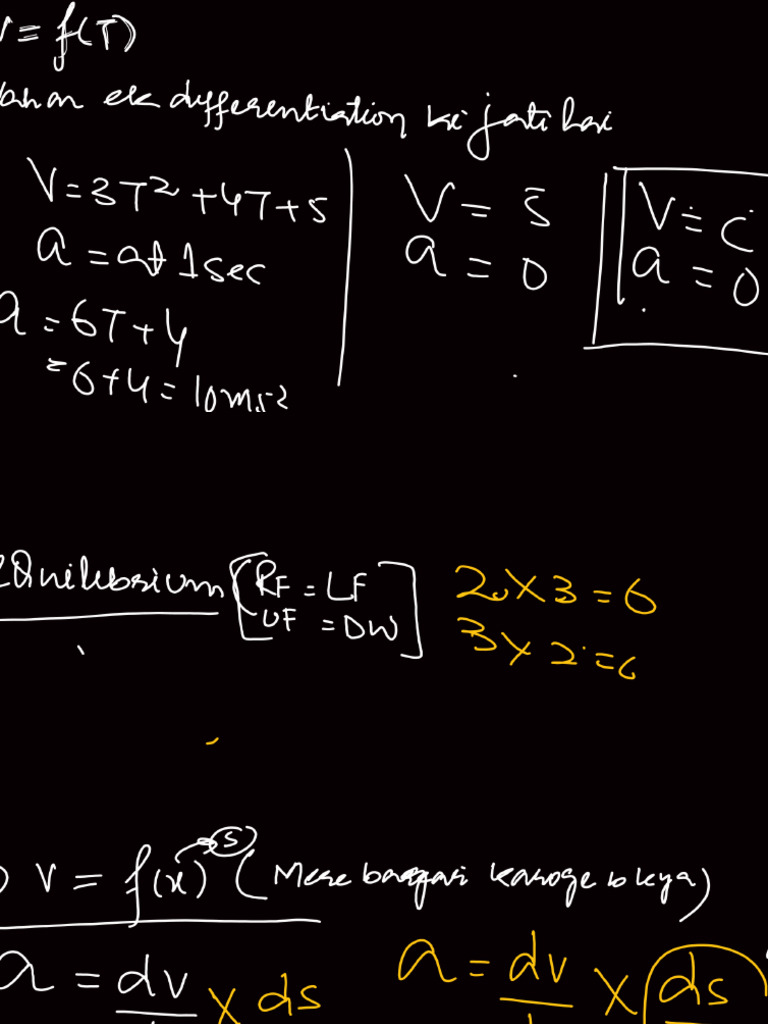 V = f(T)
ek differentiation ki jati hai
V = 3T² + 4T + 5
a = at 1sec
a = 6T + 4
= 6 + 4 = 10ms-2
V = 5
a = 0
V = C
a = 0
EQuilibrium [RF = LF
UF = DW]
2 x 3 = 6
3 x 2 = 6
V = f(x) → S (Mere barabari karoge kya)
a = dv x ds
a = dv x ds